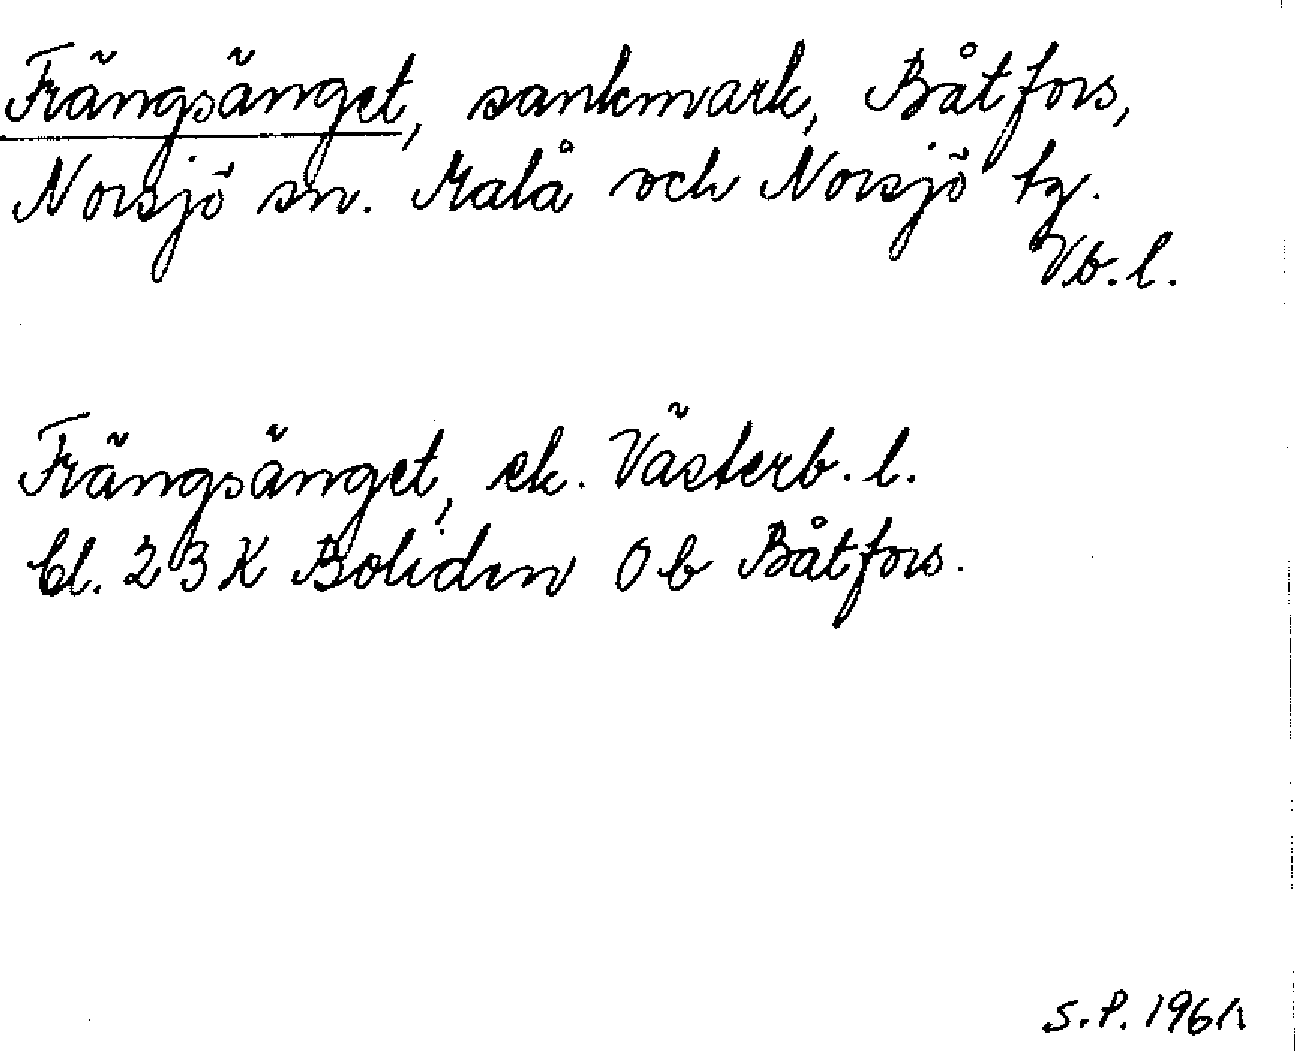 Frängsänget, sankmark, Båtfors,
Norsjö sn. Malå och Norsjö tg.
Vb. l.
Frängsänget, ek. Västerb. l.
bl. 23 K Boliden 0 b Båtfors.
S.P. 196